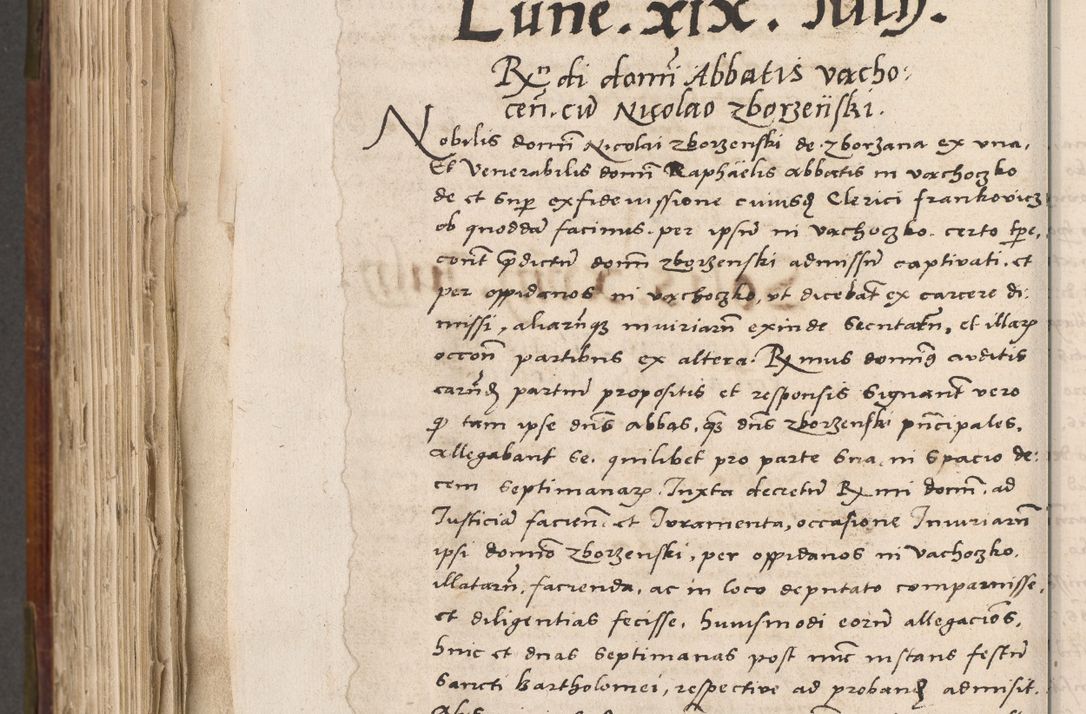 Lune. xix. Iulij.
Rx di domĩ Abbatis vacho:
ceñ. cũ Nicolao zborzeński.
Nobilis domĩ Nicolai zborzenski de zborzana ex vna,
Et Venerabilis domĩ Raphaëlis abbatis in vachoczko
de et sup exfideiussione cuiusdã Clerici frankovicz
ob quoddã facinus per ipsũ in vachoczko certo tpe,
cont pdictũ domĩ zborzenski admissũ captivati, et
per oppidanos in vachoczko, vt dicebat ex carcere di:
missi, aliarũqz iniuriarũ exinde secutarũ, et illarũ
occoñ partibus ex altera. Rx mus doming auditis
earũdẽ partiũ propositis et responsis signant vero
qz tam ipse dñs abbas, qz dñs zborzenski pñcipales,
allegabant se, quilibet pro parte sua, in spacio de:
cem septimanarũ. Iuxta decretũ Rx mi domĩ, ad
Iusticiã facieñ et Iuramenta, occasione Iniuriarũ
ipsi domino zborzenski, per oppidanos in vachoczko,
illatarũ, facienda, ac in loco deputato comparuisse,
et diligentias fecisse, huiusmodi eorũ allegacioẽs,
hinc et duas septimanas post nũc instans festũ
sancti Bartholomei, respective ad probandũ admisit.